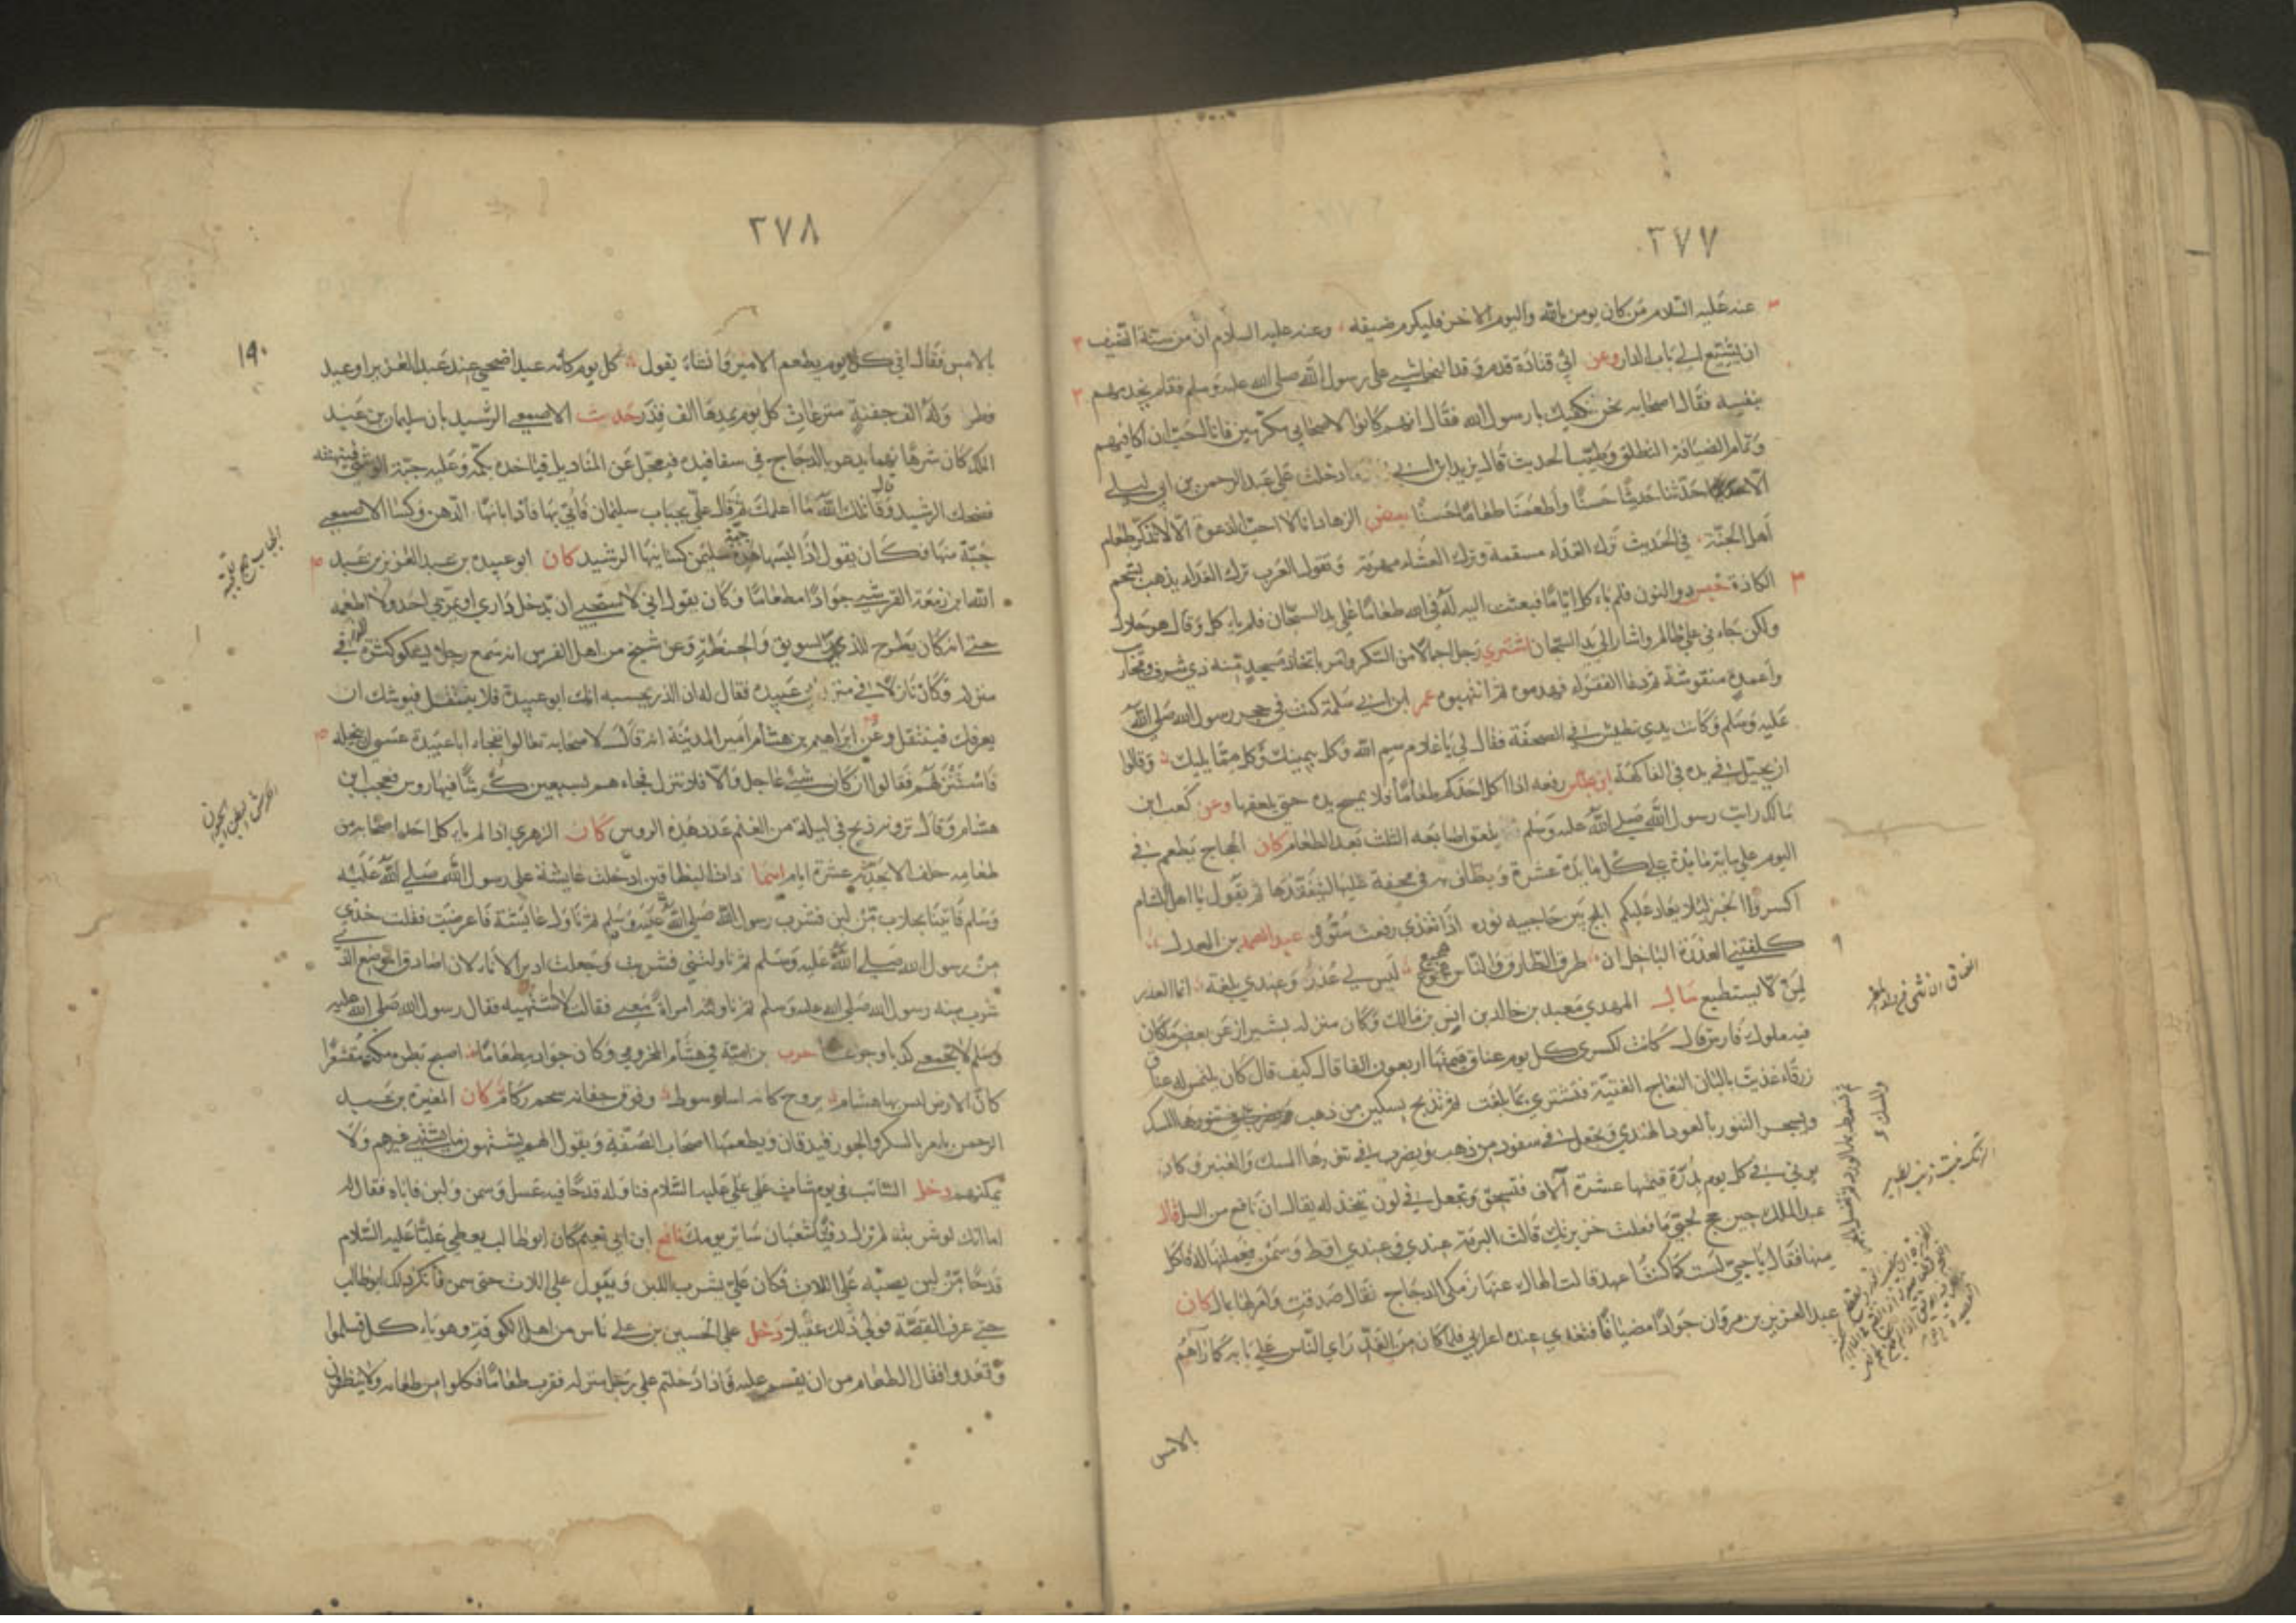 ٢٧٧
عنه عليه السلام من كان يومن بالله واليوم الاخر فليكرم ضيفه وعنه عليه السلام ان من سنة الضيف
ان يشيع الى باب الدار وعن ابي قتادة قدم وفد النجاشي على رسول الله صلى الله عليه وسلم فقام يخدمهم
بنفسه فقال اصحابه نحن نكفيك يا رسول الله فقال انهم كانوا لاصحابي مكرمين فانا احب ان اكافيهم
وتمام الضيافة الطلاقة وطيب الحديث قال يزيد ابن ابي ما دخلت على عبد الرحمن بن ابي ليلى
الا حدثنا حديثا حسنا واطعمنا طعاما حسنا بعض الزهاد انا لا احب الدعوة الا لاتذكر طعام
اهل الجنة في الحديث ترك الغداء مسقمة وترك العشاء مهرمة وتقول العرب ترك الغداء يذهب بشحم
الكاذة حبس ذو النون فلم ياكل اياما فبعثت اليه له في الله طعاما على يد السجان فلم ياكل وقال هو حلال
ولكن جاءني على ظالم واشار الى يد السجان اشترى رجل احمالا من السكر وامر باتخاذ مسجد منه ذي شرف ومحاريب
واعمدة منقوشة ثم دعا الفقراء فهدموه ثم انتهبوه عمر ابن ابي سلمة كنت في حجر رسول الله صلى الله
عليه وسلم وكانت يدي تطيش في الصحفة فقال لي يا غلام سم الله وكل بيمينك وكل مما يليك وقالوا
ان يجيل يده في الفاكهة ابن عباس رفعه اذا اكل احدكم طعاما فلا يمسح يده حتى يلعقها وعن كعب ابن
مالك رايت رسول الله صلى الله عليه وسلم يلعق اصابعه الثلث بعد الطعام كان الحجاج يطعم في
اليوم على مائة مائدة على كل مائدة عشرة ويطاف به في محفة عليها ليتفقدها ثم يقول يا اهل الشام
اكسروا الخبز لئلا يعاد عليكم ابلج بين حاجبيه نوره اذا تغدى رفعت ستوره عبد الصمد بن المعدل
كلفتني العذرة الباخل ان طرق الطارق والناس هجوع ليس لي عذر وعندي بلغة انما العذر
لمن لا يستطيع سال المهدي معبد بن خالد بن انس بن مالك وكان منزله بشيراز عن بعض ما كان
فيه ملوك فارس قال كانت لكسرى كل يوم عناق قيمتها اربعون الفا قال كيف قال كان يلتمس له عناق
زرقاء غذيت بالبان النعاج الفتية فتشترى بما بلغت ثم تذبح بسكين من ذهب
ويسجر التنور بالعود الهندي وتجعل في سفود من ذهب ويضرب في تنورها المسك والعنبر وكان
يوتى في كل يوم بدرة قيمتها عشرة آلاف فتسحق وتجعل في لون تتخذ له يقال انه نافع من السل قال
عبد الملك حين حج لحبى ما فعلت خزيرتك قالت البرمة عندي وعندي اقط وسمن فعملتها له فاكل
منها فقال يا حبى ليست كما كنت اعهد قالت الهاك عنها زمكى الدجاج فقال صدقت وامر لها بمال كان
عبد العزيز بن مروان جوادا مضيافا فتغدى عنده اعرابي فلما كان من الغد راى الناس على بابه كما راهم
بالامس
٢٧٨
١٩٠
بالامس فقال افي كل يوم يطعم الامير فانشاء يقول كل يوم كانه عيد اضحى عند عبد العزيز او عيد
فطر وله الف جفنة مترعات كل يوم يمدها الف قدر حدث الاصمعي الرشيد بان سليمان بن عبد
الملك كان شرها نهما يدعو بالدجاج في سفافيده فيعجل عن المناديل فياخذه بكمه وعليه جبة الوشي
فضحك الرشيد وقال قاتلك الله ما اعلمك ثم قال علي بجباب سليمان فاتي بها فاذا باثار الدهن وكسا الاصمعي
جبة منها فكان يقول اذا لبسها هذه جبة سليمن كسانيها الرشيد كان ابو عبيدة بن عبد العزيز بن عبد
الله ابن زمعة القرشي جوادا مطعاما وكان يقول اني لاستحيي ان يدخل داري او يمر بي احد ولا اطعمه
حتى انه كان يطرح للذر السويق والحنطة وعن شيخ من اهل الفرس انه سمع رجلا يشكو كثرة الذر في
منزله وكان نازلا في منزل ابي عبيدة فقال له ان الذر يحسبه انك ابو عبيدة فلا ينتقل فيوشك ان
يعرفك فينتقل وعن ابراهيم بن هشام امير المدينة انه قال لاصحابه تعالوا نفجاء ابا عبيدة عسى ان نبخله
فاستنزلهم فقالوا ان كان شيء عاجل والا فلا ننزل فجاءهم بسبعين كرشا فيها روس فعجب ابن
هشام وقال ترونه ذبح في ليلة من الغنم عدد هذه الروس كان الزهري اذا لم ياكل احد اصحابه من
طعامه حلف الا يحدثه عشرة ايام اسماء ذات النطاقين ادخلت عايشة على رسول الله صلى الله عليه
وسلم فاتينا بحلاب من لبن فشرب رسول الله صلى الله عليه وسلم ثم ناول عايشة فاعرضت فقلت خذي
من رسول الله صلى الله عليه وسلم ثم ناولتني فشربت وجعلت ادير الاناء لان اصادق الموضع الذي
شرب منه رسول الله صلى الله عليه وسلم ثم ناولته امراة معي فقالت لا اشتهيه فقال رسول الله صلى الله عليه
وسلم لا تجمعي كذبا وجوعا حرب بن امية في هشام المخزومي وكان جوادا مطعاما اصبح بطن مكة مقشعرا
كان الارض ليس بها هشام يروح كانه اشلاء سوط وفوق جفانه شحم ركام كان المغيرة بن عبد
الرحمن يامر بالسكر والجوز فيدقان ويطعمها اصحاب الصفة ويقول انهم يشتهون ما يشتهي غيرهم ولا
يمكنهم دخل السائب في يوم شات على علي عليه السلام فناوله قدحا فيه عسل وسمن ولبن فاباه فقال له
اما انك لو شربته لم تزل دفيا شعبان سائر يومك نافع ابن ابي نعيم كان ابو طالب يعطي عليا عليه السلام
قدحا من لبن يصبه على اللات فكان علي يشرب اللبن ويبول على اللات حتى سمن فانكر ذلك ابو طالب
حتى عرف القصة فولى ذلك عقيلا دخل علي الحسين بن علي ناس من اهل الكوفة وهو ياكل فسلموا
وقعدوا فقال الطعام من ان يقسم عليه فاذا دخلتم على رجل منزله فقرب طعاما فكلوا من طعامه ولا ينظر